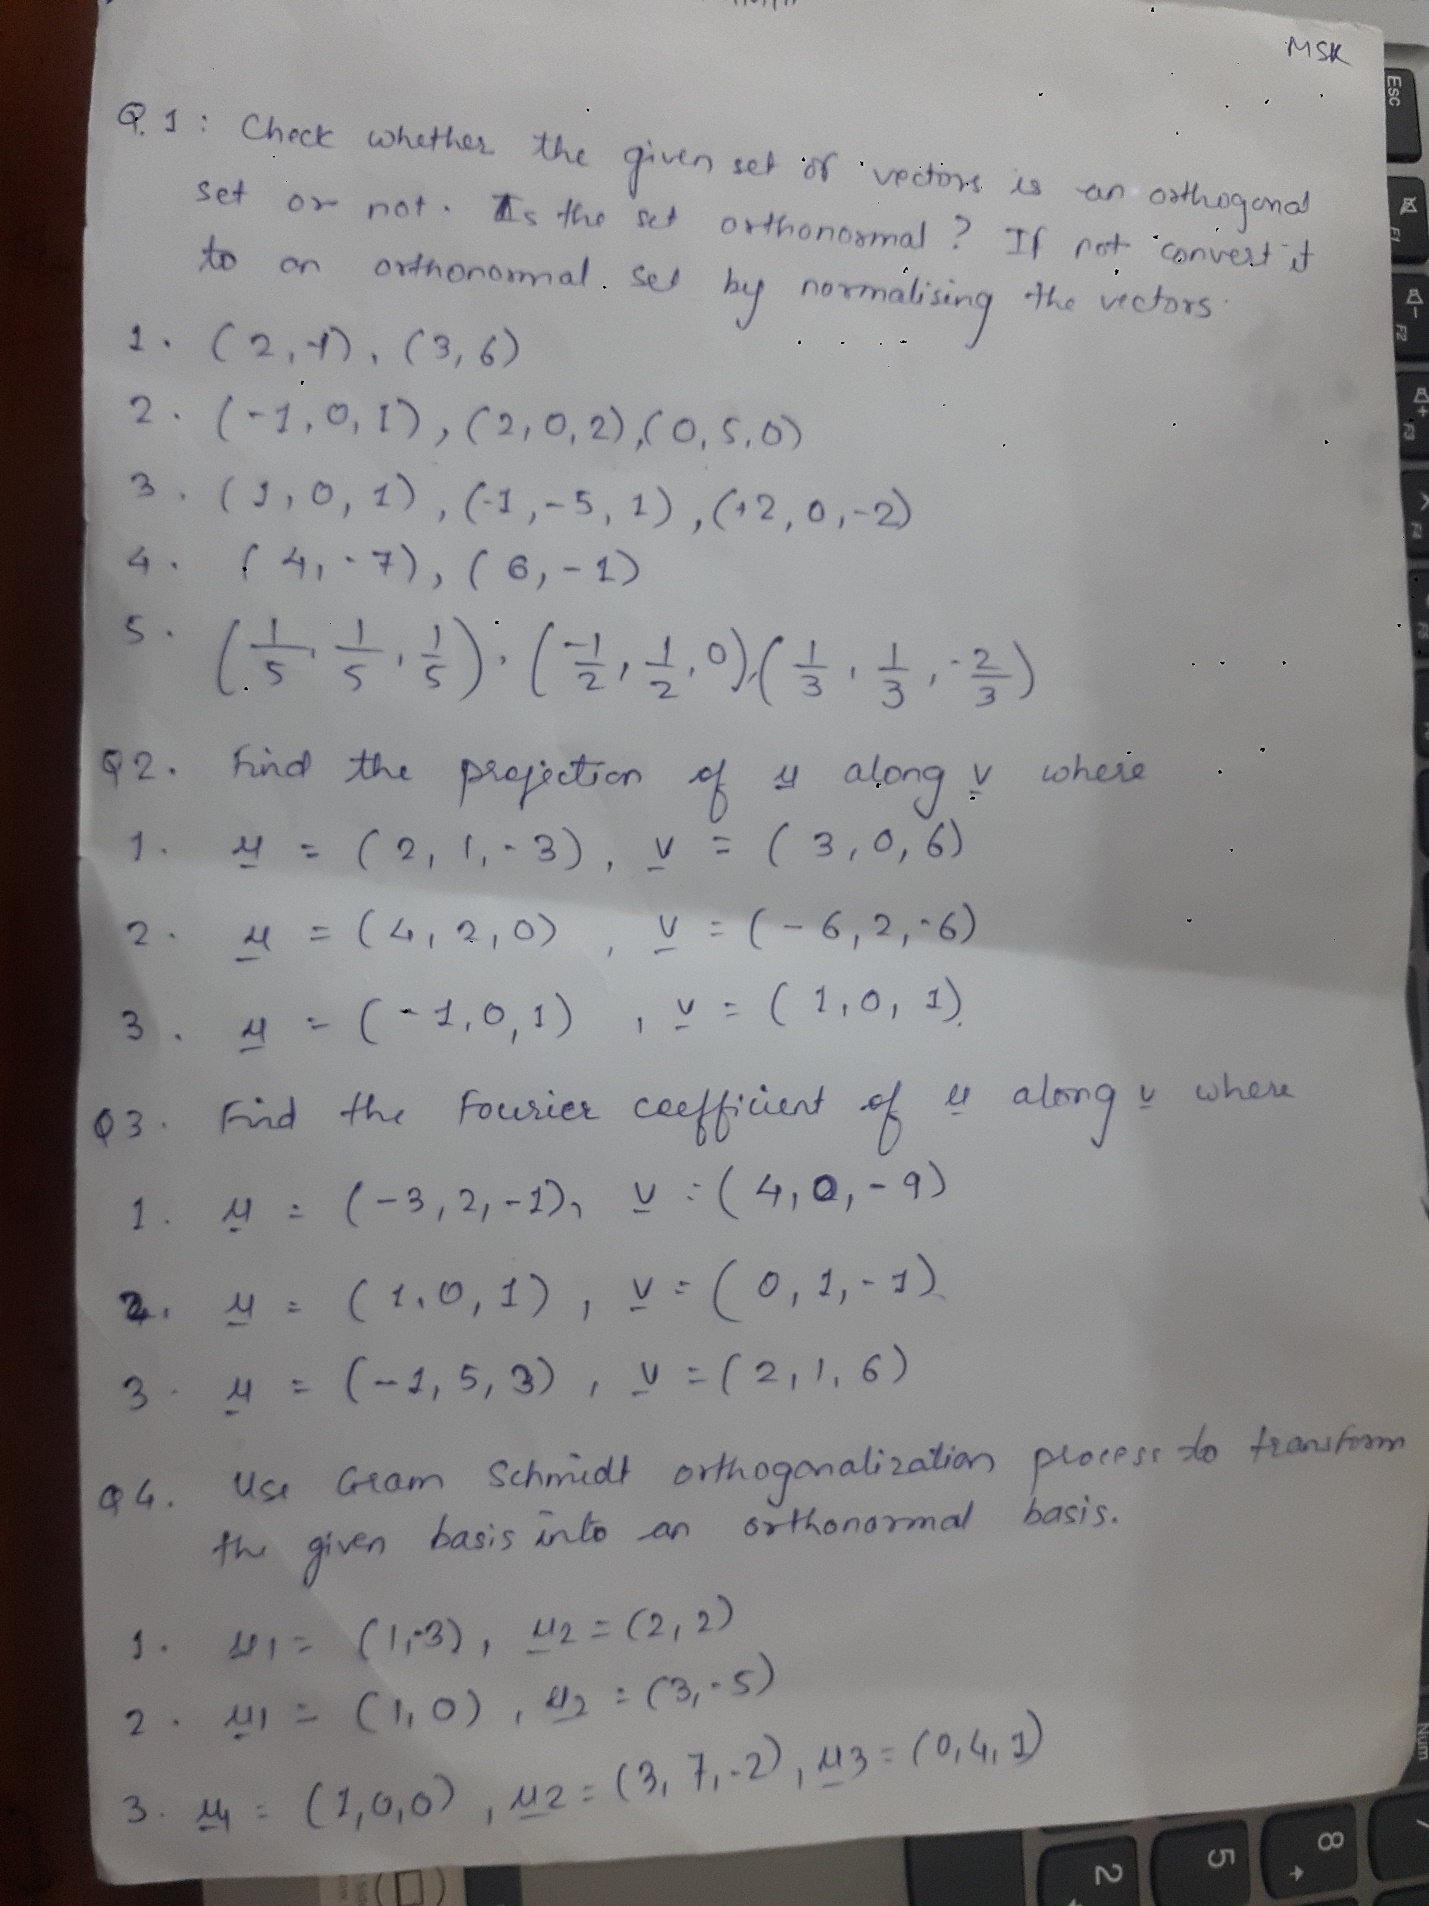 MSK
Q.1: Check whether the given set of vectors is an orthogonal
set or not. Is the set orthonormal? If not convert it
to an orthonormal set by normalising the vectors.
1. (2,-1), (3,6)
2. (-1,0,1), (2,0,2), (0,5,0)
3. (1,0,1), (-1,-5,1), (+2,0,-2)
4. (4,-7), (6,-1)
5. (1/5, 1/5, 1/5), (-1/2, 1/2, 0), (1/3, 1/3, -2/3)
Q2. Find the projection of u along v where
1. u = (2,1,-3), v = (3,0,6)
2. u = (4,2,0), v = (-6,2,-6)
3. u = (-1,0,1), v = (1,0,1)
Q3. Find the Fourier coefficient of u along v where
1. u = (-3,2,-1), v = (4,0,-9)
2. u = (1,0,1), v = (0,1,-1)
3. u = (-1,5,3), v = (2,1,6)
Q4. Use Gram Schmidt orthogonalization process to transform
the given basis into an orthonormal basis.
1. u1 = (1,-3), u2 = (2,2)
2. u1 = (1,0), u2 = (3,-5)
3. u1 = (1,0,0), u2 = (3,7,-2), u3 = (0,4,1)
Esc
F1
F2
F3
Num
2
5
8